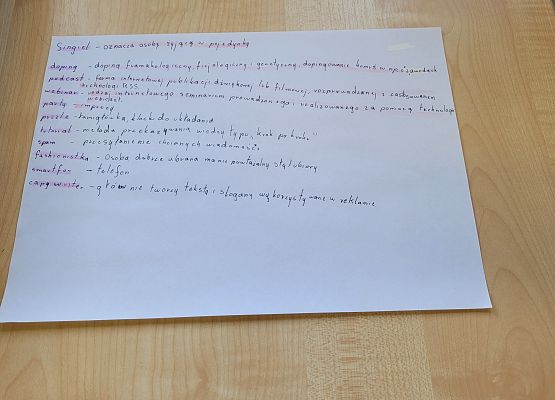 Singiel - oznacza osobę żyjącą w pojedynkę
doping - doping framakologiczny, fizjologiczny i genetyczny, dopingowanie kogoś w np. zawodach
podcast - forma internetowej publikacji dźwiękowej lub filmowej, rozprowadzanej z zastosowaniem
technologi RSS
webinar - rodzaj internetowego seminarium prowadzonego i realizowanego za pomocą technologi
webcast.
party - imprezę
puzzle - łamigłówka, klocki do układania
tutorial - metoda przekazywania wiedzy typu, krok po kroku"
spam - przesyłanie niechcianych wiadomości
fashionistka - osoba dobrze ubrana mająca
smartfon - telefon
copywriter - głównie tworzy teksty i slogany wykorzystywane w reklamie